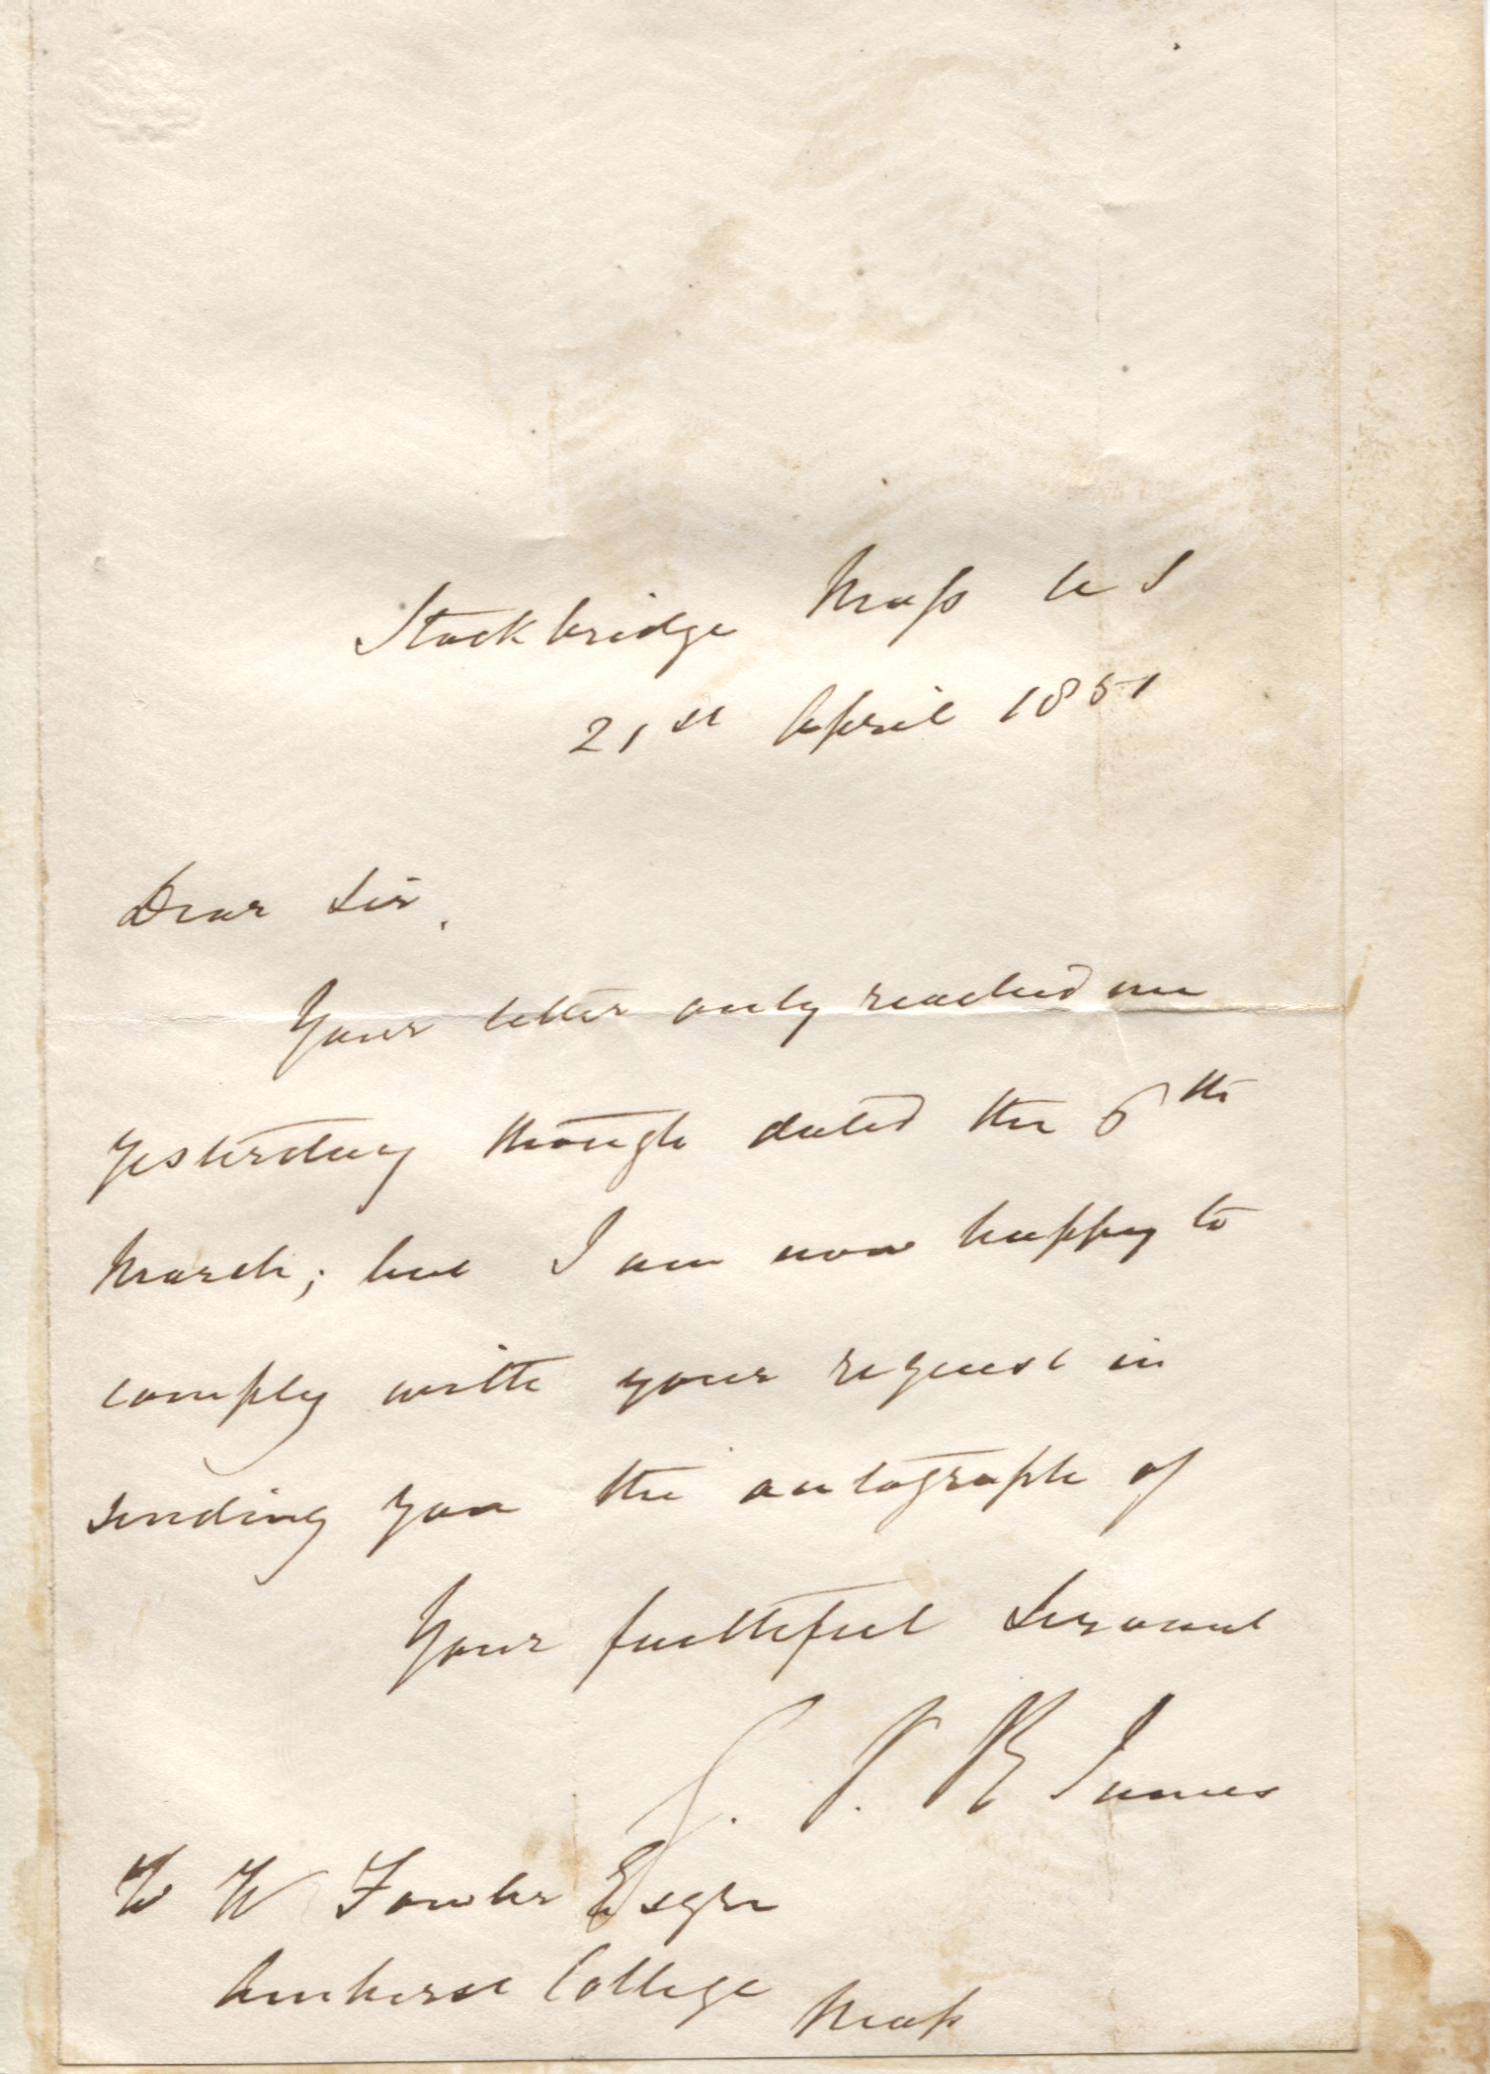 Stockbridge Mass U S
21st April 1851
Dear Sir.
Your letter only reached me
yesterday though dated the 6th
March; but I am now happy to
comply with your request in
sending you the autograph of
Your faithful Servant
G. P. R James
W W Fowler Esqre
Amherst College
Mass